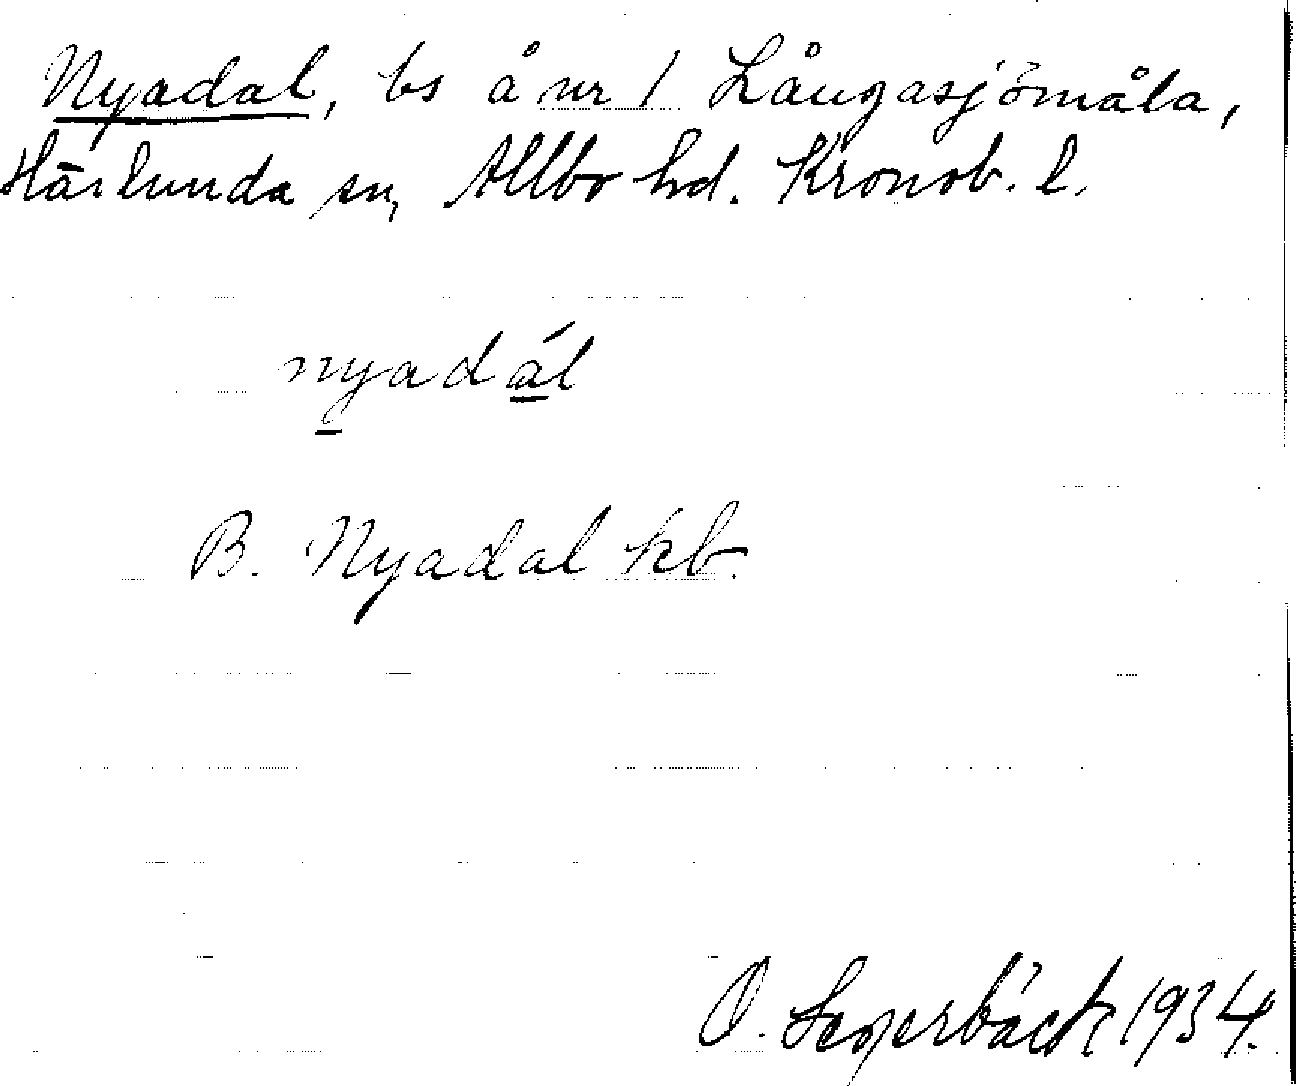 Nyadal, bs å nr 1 Långasjömåla,
Härlunda sn, Allbo hd. Kronob. l.
nyadál
B. Nyadal kb.
O. Segerbäck 1934.